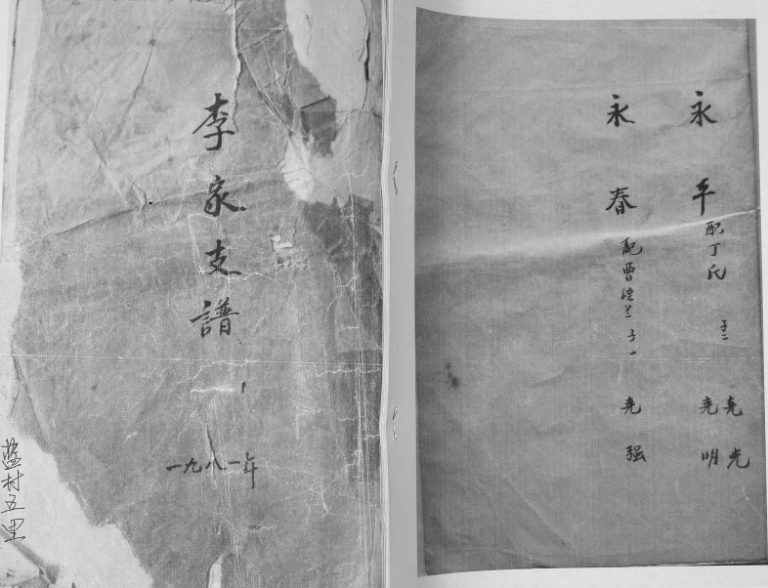 李家支譜
一九八一年
蓝村五里
永平 配丁氏 子二 克光
克明
永春 配曹兰 子一 克强